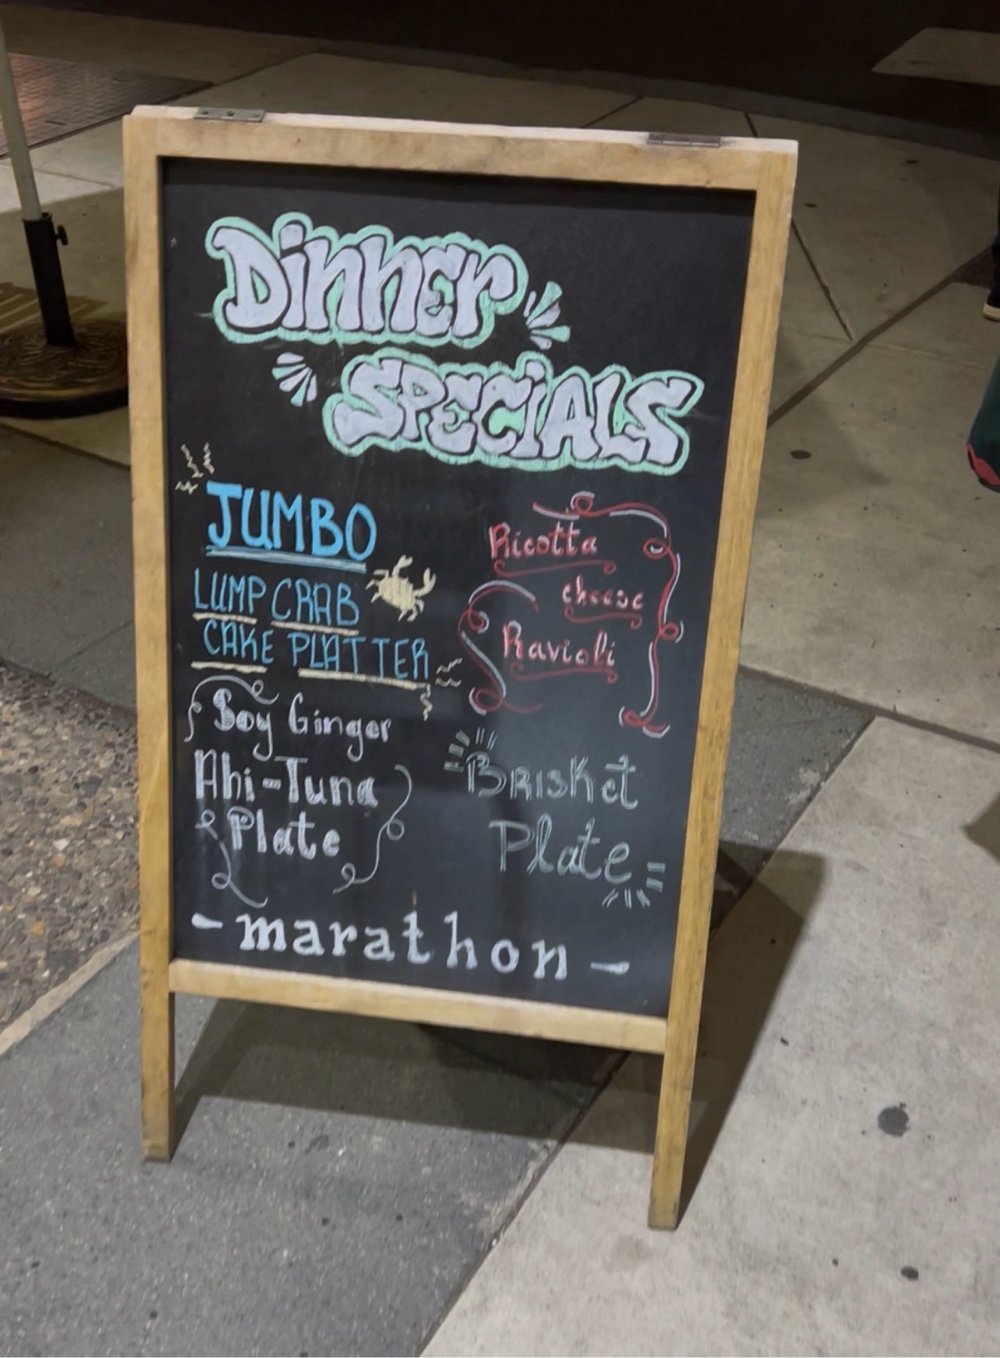 Dinner
SPECIALS
JUMBO
LUMP CRAB
CAKE PLATTER
Soy Ginger
Ahi-Tuna
Plate
Ricotta
cheese
Ravioli
Brisket
Plate
- marathon -